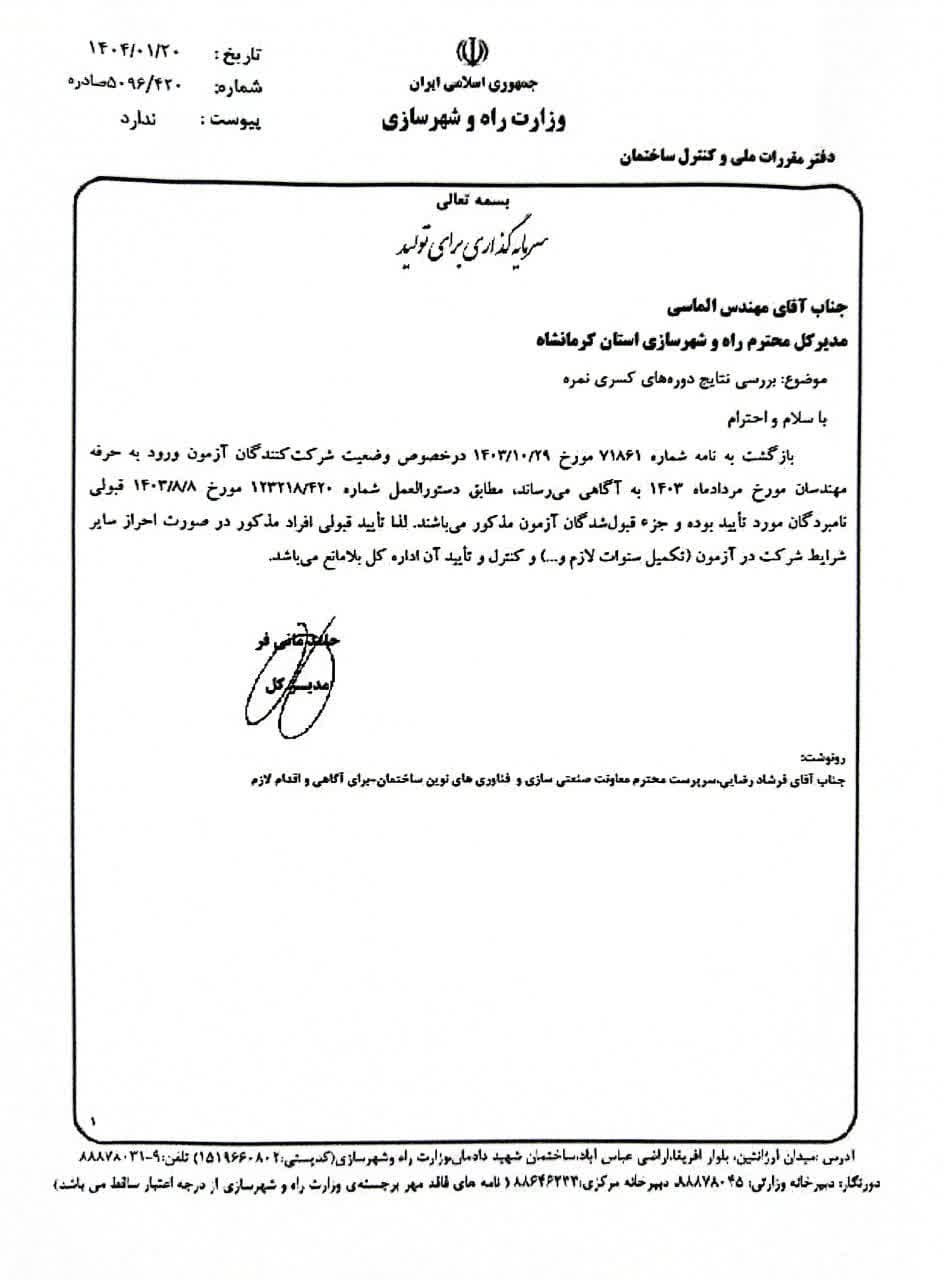 جمهوری اسلامی ایران
وزارت راه و شهرسازی
تاریخ: ۱۴۰۴/۰۱/۲۰
شماره: ۵۰۹۶/۴۲۰صادره
پیوست: ندارد
دفتر مقررات ملی و کنترل ساختمان
بسمه تعالی
سرمایه گذاری برای تولید
جناب آقای مهندس الماسی
مدیرکل محترم راه و شهرسازی استان کرمانشاه
موضوع: بررسی نتایج دوره‌های کسری نمره
با سلام و احترام
بازگشت به نامه شماره ۷۱۸۶۱ مورخ ۱۴۰۳/۱۰/۲۹ درخصوص وضعیت شرکت‌کنندگان آزمون ورود به حرفه
مهندسان مورخ مردادماه ۱۴۰۳ به آگاهی می‌رساند، مطابق دستورالعمل شماره ۱۲۳۲۱۸/۴۲۰ مورخ ۱۴۰۳/۸/۸ قبولی
نامبردگان مورد تأیید بوده و جزء قبول‌شدگان آزمون مذکور می‌باشند. لذا تأیید قبولی افراد مذکور در صورت احراز سایر
شرایط شرکت در آزمون (تکمیل سنوات لازم و...) و کنترل و تأیید آن اداره کل بلامانع می‌باشد.
حامد مانی فر
مدیر کل
رونوشت:
جناب آقای فرشاد رضایی،سرپرست محترم معاونت صنعتی سازی و فناوری های نوین ساختمان-برای آگاهی و اقدام لازم
۱
آدرس :میدان آرژانتین، بلوار آفریقا،اراضی عباس آباد،ساختمان شهید دادمان،وزارت راه وشهرسازی(کدپستی:۱۵۱۹۶۶۰۸۰۲) تلفن:۹-۸۸۸۷۸۰۳۱
دورنگار: دبیرخانه وزارتی: ۸۸۸۷۸۰۴۵، دبیرخانه مرکزی:۸۸۶۴۶۲۳۳ ( نامه های فاقد مهر برجسته‌ی وزارت راه و شهرسازی از درجه اعتبار ساقط می باشد)